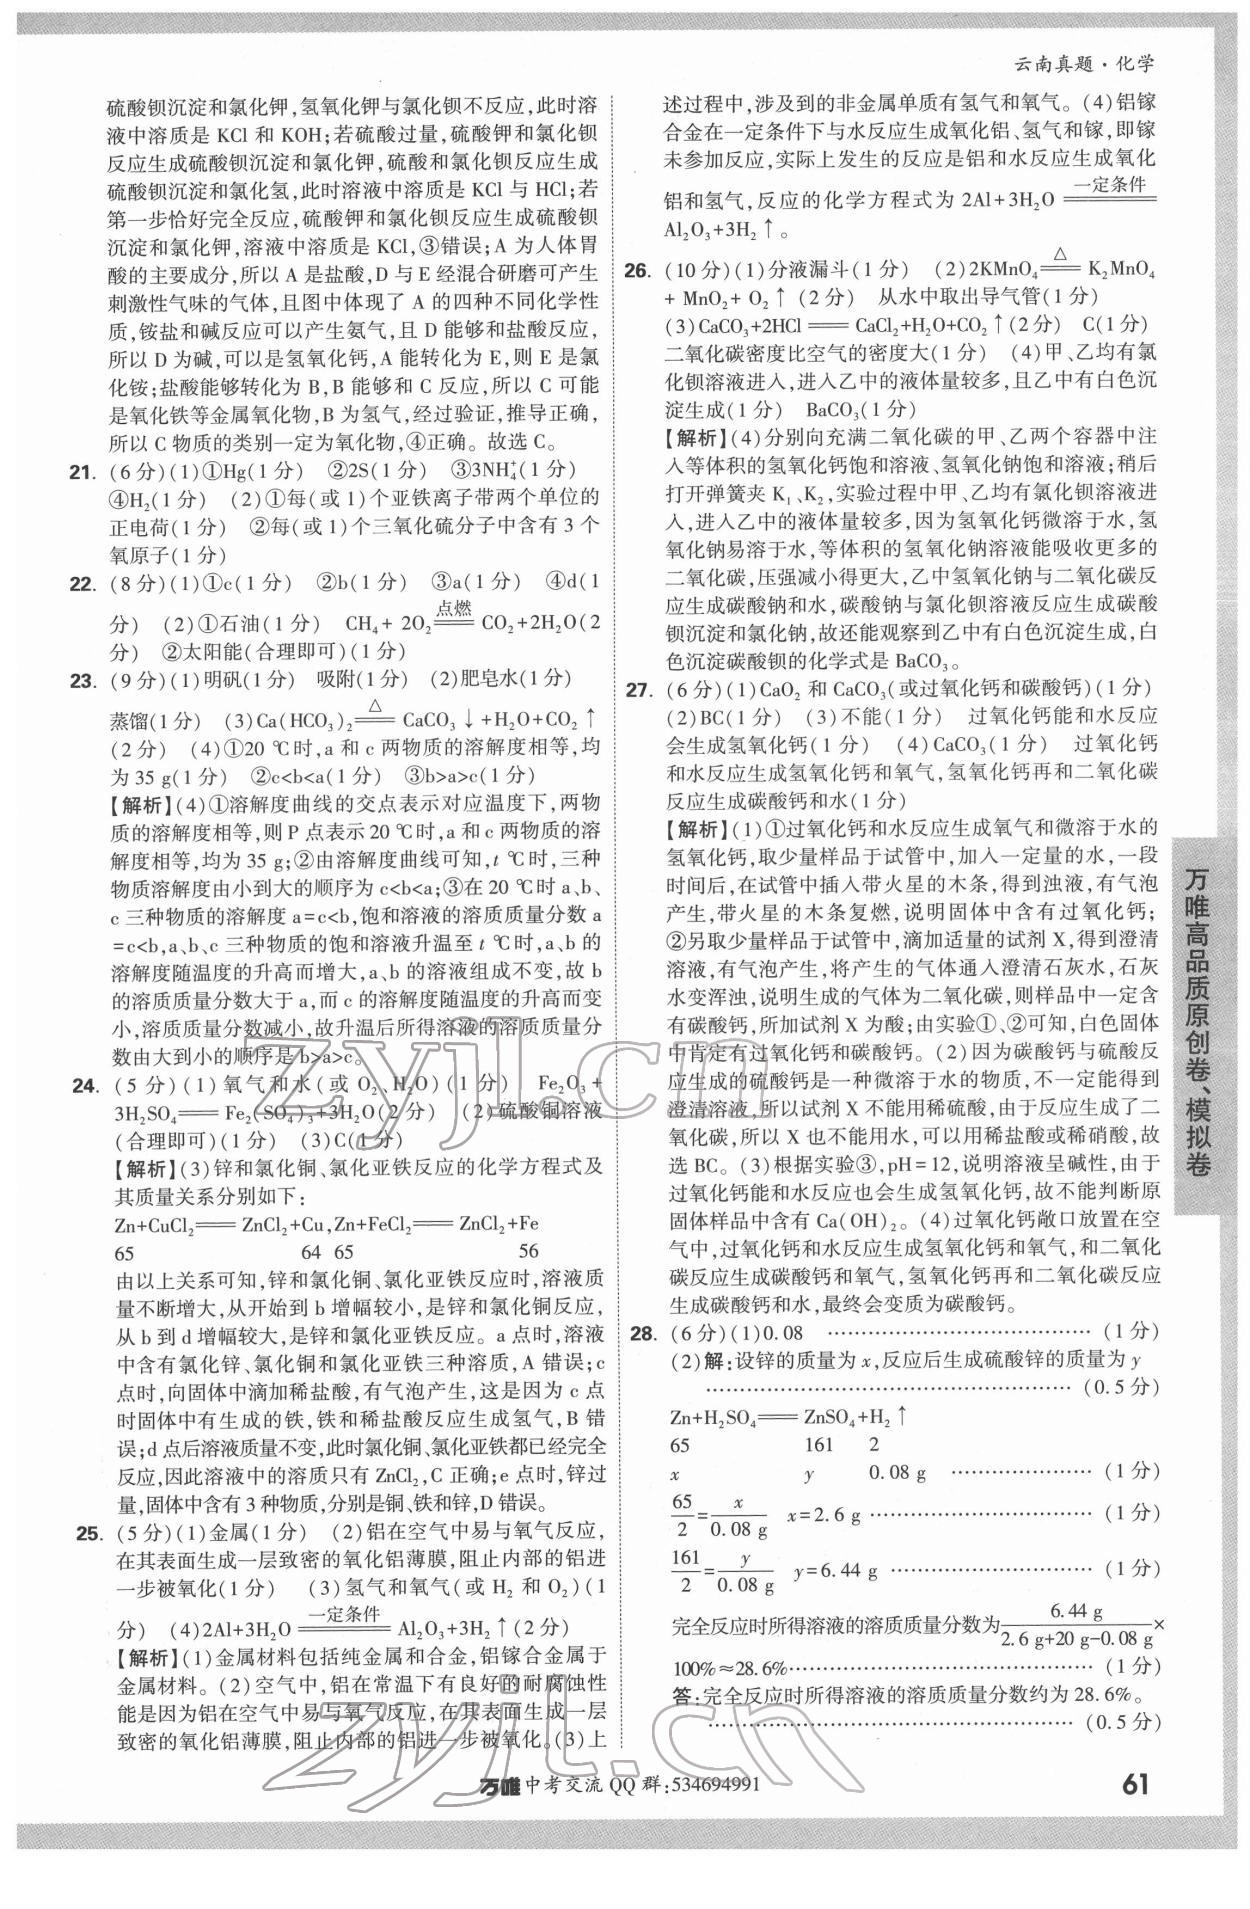 云南真题·化学
硫酸钡沉淀和氯化钾,氢氧化钾与氯化钡不反应,此时溶
液中溶质是 KCl 和 KOH;若硫酸过量,硫酸钾和氯化钡
反应生成硫酸钡沉淀和氯化钾,硫酸和氯化钡反应生成
硫酸钡沉淀和氯化氢,此时溶液中溶质是 KCl 与 HCl;若
第一步恰好完全反应,硫酸钾和氯化钡反应生成硫酸钡
沉淀和氯化钾,溶液中溶质是 KCl,③错误;A 为人体胃
酸的主要成分,所以 A 是盐酸,D 与 E 经混合研磨可产生
刺激性气味的气体,且图中体现了 A 的四种不同化学性
质,铵盐和碱反应可以产生氨气,且 D 能够和盐酸反应,
所以 D 为碱,可以是氢氧化钙,A 能转化为 E,则 E 是氯
化铵;盐酸能够转化为 B,B 能够和 C 反应,所以 C 可能
是氧化铁等金属氧化物,B 为氢气,经过验证,推导正确,
所以 C 物质的类别一定为氧化物,④正确。故选 C。
21. (6 分)(1)①Hg(1 分) ②2S(1 分) ③3NH₄⁺(1 分)
④H₂(1 分) (2)①每(或1)个亚铁离子带两个单位的
正电荷(1 分) ②每(或1)个三氧化硫分子中含有 3 个
氧原子(1 分)
22. (8 分)(1)①c(1 分) ②b(1 分) ③a(1 分) ④d(1
分) (2)①石油(1 分) CH₄+ 2O₂ 点燃══ CO₂+2H₂O(2
分) ②太阳能(合理即可)(1 分)
23. (9 分)(1)明矾(1 分) 吸附(1 分) (2)肥皂水(1 分)
蒸馏(1 分) (3)Ca(HCO₃)₂ △══ CaCO₃↓+H₂O+CO₂↑
(2 分) (4)①20 ℃时,a 和 c 两物质的溶解度相等,均
为 35 g(1 分) ②c<b<a(1 分) ③b>a>c(1 分)
【解析】(4)①溶解度曲线的交点表示对应温度下,两物
质的溶解度相等,则 P 点表示 20 ℃时,a 和 c 两物质的溶
解度相等,均为 35 g;②由溶解度曲线可知,t ℃时,三种
物质溶解度由小到大的顺序为 c<b<a;③在 20 ℃时 a、b、
c 三种物质的溶解度 a=c<b,饱和溶液的溶质质量分数 a
=c<b,a、b、c 三种物质的饱和溶液升温至 t ℃时,a、b 的
溶解度随温度的升高而增大,a、b 的溶液组成不变,故 b
的溶质质量分数大于 a,而 c 的溶解度随温度的升高而变
小,溶质质量分数减小,故升温后所得溶液的溶质质量分
数由大到小的顺序是 b>a>c。
24. (5 分)(1)氧气和水(或 O₂、H₂O)(1 分) Fe₂O₃+
3H₂SO₄══ Fe₂(SO₄)₃+3H₂O(2 分) (2)硫酸铜溶液
(合理即可)(1 分) (3)C(1 分)
【解析】(3)锌和氯化铜、氯化亚铁反应的化学方程式及
其质量关系分别如下:
Zn+CuCl₂══ ZnCl₂+Cu,Zn+FeCl₂══ ZnCl₂+Fe
65 64 65 56
由以上关系可知,锌和氯化铜、氯化亚铁反应时,溶液质
量不断增大,从开始到 b 增幅较小,是锌和氯化铜反应,
从 b 到 d 增幅较大,是锌和氯化亚铁反应。a 点时,溶液
中含有氯化锌、氯化铜和氯化亚铁三种溶质,A 错误;c
点时,向固体中滴加稀盐酸,有气泡产生,这是因为 c 点
时固体中有生成的铁,铁和稀盐酸反应生成氢气,B 错
误;d 点后溶液质量不变,此时氯化铜、氯化亚铁都已经完全
反应,因此溶液中的溶质只有 ZnCl₂,C 正确;e 点时,锌过
量,固体中含有 3 种物质,分别是铜、铁和锌,D 错误。
25. (5 分)(1)金属(1 分) (2)铝在空气中易与氧气反应,
在其表面生成一层致密的氧化铝薄膜,阻止内部的铝进
一步被氧化(1 分) (3)氢气和氧气(或 H₂ 和 O₂)(1
分) (4)2Al+3H₂O 一定条件══ Al₂O₃+3H₂↑(2 分)
【解析】(1)金属材料包括纯金属和合金,铝镓合金属于
金属材料。(2)空气中,铝在常温下有良好的耐腐蚀性
能是因为铝在空气中易与氧气反应,在其表面生成一层
致密的氧化铝薄膜,阻止内部的铝进一步被氧化。(3)上
述过程中,涉及到的非金属单质有氢气和氧气。(4)铝镓
合金在一定条件下与水反应生成氧化铝、氢气和镓,即镓
未参加反应,实际上发生的反应是铝和水反应生成氧化
铝和氢气,反应的化学方程式为 2Al+3H₂O 一定条件══
Al₂O₃+3H₂↑。
26. (10 分)(1)分液漏斗(1 分) (2)2KMnO₄ △══ K₂MnO₄
+ MnO₂+ O₂↑(2 分) 从水中取出导气管(1 分)
(3)CaCO₃+2HCl══ CaCl₂+H₂O+CO₂↑(2 分) C(1 分)
二氧化碳密度比空气的密度大(1 分) (4)甲、乙均有氯
化钡溶液进入,进入乙中的液体量较多,且乙中有白色沉
淀生成(1 分) BaCO₃(1 分)
【解析】(4)分别向充满二氧化碳的甲、乙两个容器中注
入等体积的氢氧化钙饱和溶液、氢氧化钠饱和溶液;稍后
打开弹簧夹 K₁、K₂,实验过程中甲、乙均有氯化钡溶液进
入,进入乙中的液体量较多,因为氢氧化钙微溶于水,氢
氧化钠易溶于水,等体积的氢氧化钠溶液能吸收更多的
二氧化碳,压强减小得更大,乙中氢氧化钠与二氧化碳反
应生成碳酸钠和水,碳酸钠与氯化钡溶液反应生成碳酸
钡沉淀和氯化钠,故还能观察到乙中有白色沉淀生成,白
色沉淀碳酸钡的化学式是 BaCO₃。
27. (6 分)(1)CaO₂ 和 CaCO₃(或过氧化钙和碳酸钙)(1 分)
(2)BC(1 分) (3)不能(1 分) 过氧化钙能和水反应
会生成氢氧化钙(1 分) (4)CaCO₃(1 分) 过氧化钙
和水反应生成氢氧化钙和氧气,氢氧化钙再和二氧化碳
反应生成碳酸钙和水(1 分)
【解析】(1)①过氧化钙和水反应生成氧气和微溶于水的
氢氧化钙,取少量样品于试管中,加入一定量的水,一段
时间后,在试管中插入带火星的木条,得到浊液,有气泡
产生,带火星的木条复燃,说明固体中含有过氧化钙;
②另取少量样品于试管中,滴加适量的试剂 X,得到澄清
溶液,有气泡产生,将产生的气体通入澄清石灰水,石灰
水变浑浊,说明生成的气体为二氧化碳,则样品中一定含
有碳酸钙,所加试剂 X 为酸;由实验①、②可知,白色固体
中肯定有过氧化钙和碳酸钙。(2)因为碳酸钙与硫酸反
应生成的硫酸钙是一种微溶于水的物质,不一定能得到
澄清溶液,所以试剂 X 不能用稀硫酸,由于反应生成了二
氧化碳,所以 X 也不能用水,可以用稀盐酸或稀硝酸,故
选 BC。(3)根据实验③,pH=12,说明溶液呈碱性,由于
过氧化钙能和水反应也会生成氢氧化钙,故不能判断原
固体样品中含有 Ca(OH)₂。(4)过氧化钙敞口放置在空
气中,过氧化钙和水反应生成氢氧化钙和氧气,和二氧化
碳反应生成碳酸钙和氧气,氢氧化钙再和二氧化碳反应
生成碳酸钙和水,最终会变质为碳酸钙。
28. (6 分)(1)0.08 …………………………………(1 分)
(2)解:设锌的质量为 x,反应后生成硫酸锌的质量为 y
………………………………………………(0.5 分)
Zn+H₂SO₄══ ZnSO₄+H₂↑
65 161 2
x y 0.08 g …………………(1 分)
65/2=x/0.08 g x=2.6 g ……………………………(1 分)
161/2=y/0.08 g y=6.44 g …………………………(1 分)
完全反应时所得溶液的溶质质量分数为 6.44 g/2.6 g+20 g-0.08 g ×
100%≈28.6%………………………………………(1 分)
答:完全反应时所得溶液的溶质质量分数约为 28.6%。
………………………………………………(0.5 分)
万唯高品质原创卷、模拟卷
万唯中考交流 QQ 群:534694991
61
zyjl.cn
zyjl.cn